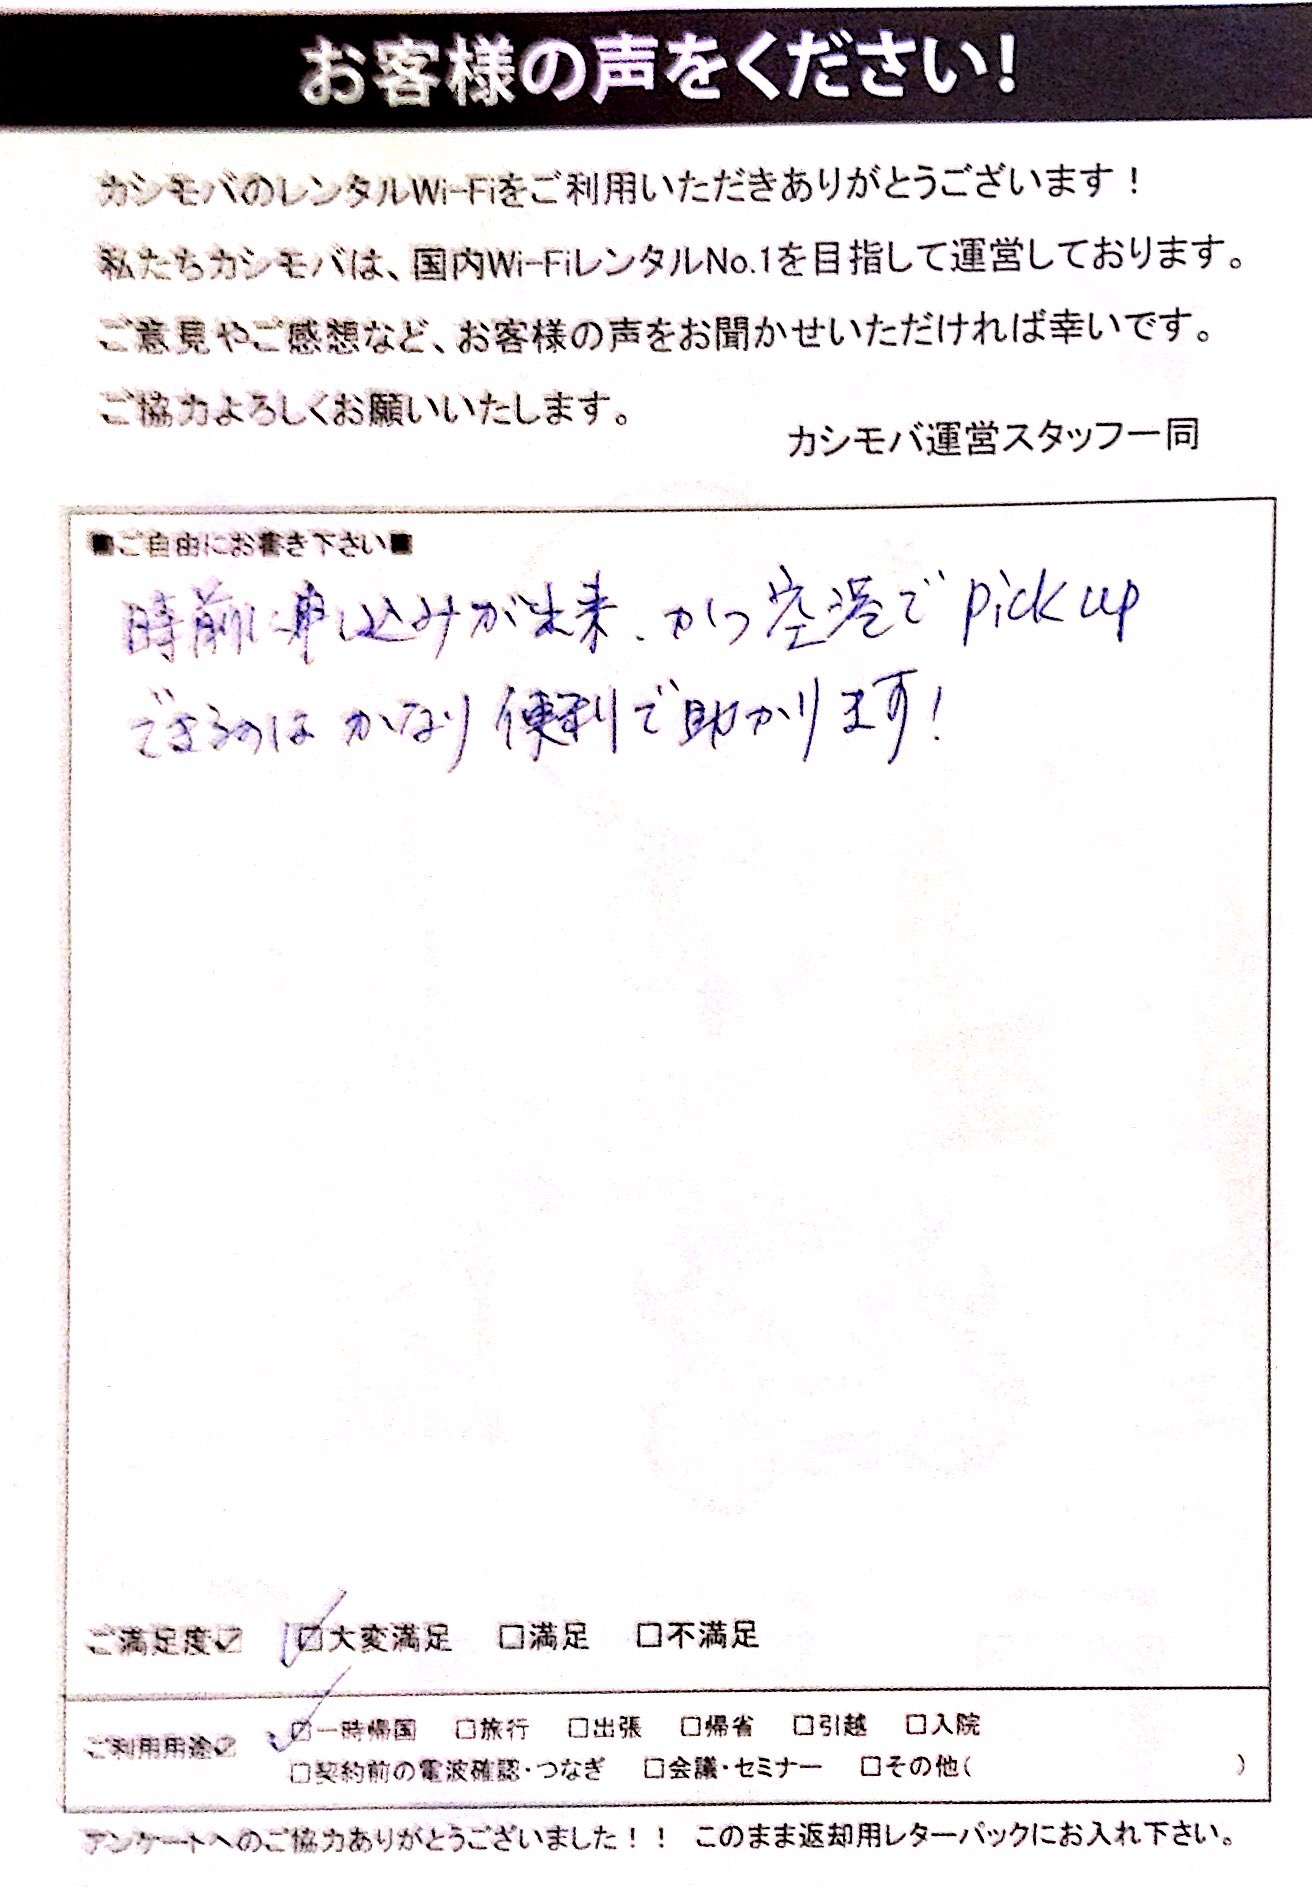 お客様の声をください!
カシモバのレンタルWi-Fiをご利用いただきありがとうございます！
私たちカシモバは、国内Wi-FiレンタルNo.1を目指して運営しております。
ご意見やご感想など、お客様の声をお聞かせいただければ幸いです。
ご協力よろしくお願いいたします。
カシモバ運営スタッフ一同
■ご自由にお書き下さい■
時前に申し込みが出来、かつ空港でpick up
できるのはかなり便利で助かります!
ご満足度☑ ☑大変満足 □満足 □不満足
ご利用用途☑ ☑一時帰国 □旅行 □出張 □帰省 □引越 □入院
□契約前の電波確認・つなぎ □会議・セミナー □その他( )
アンケートへのご協力ありがとうございました！！ このまま返却用レターパックにお入れ下さい。